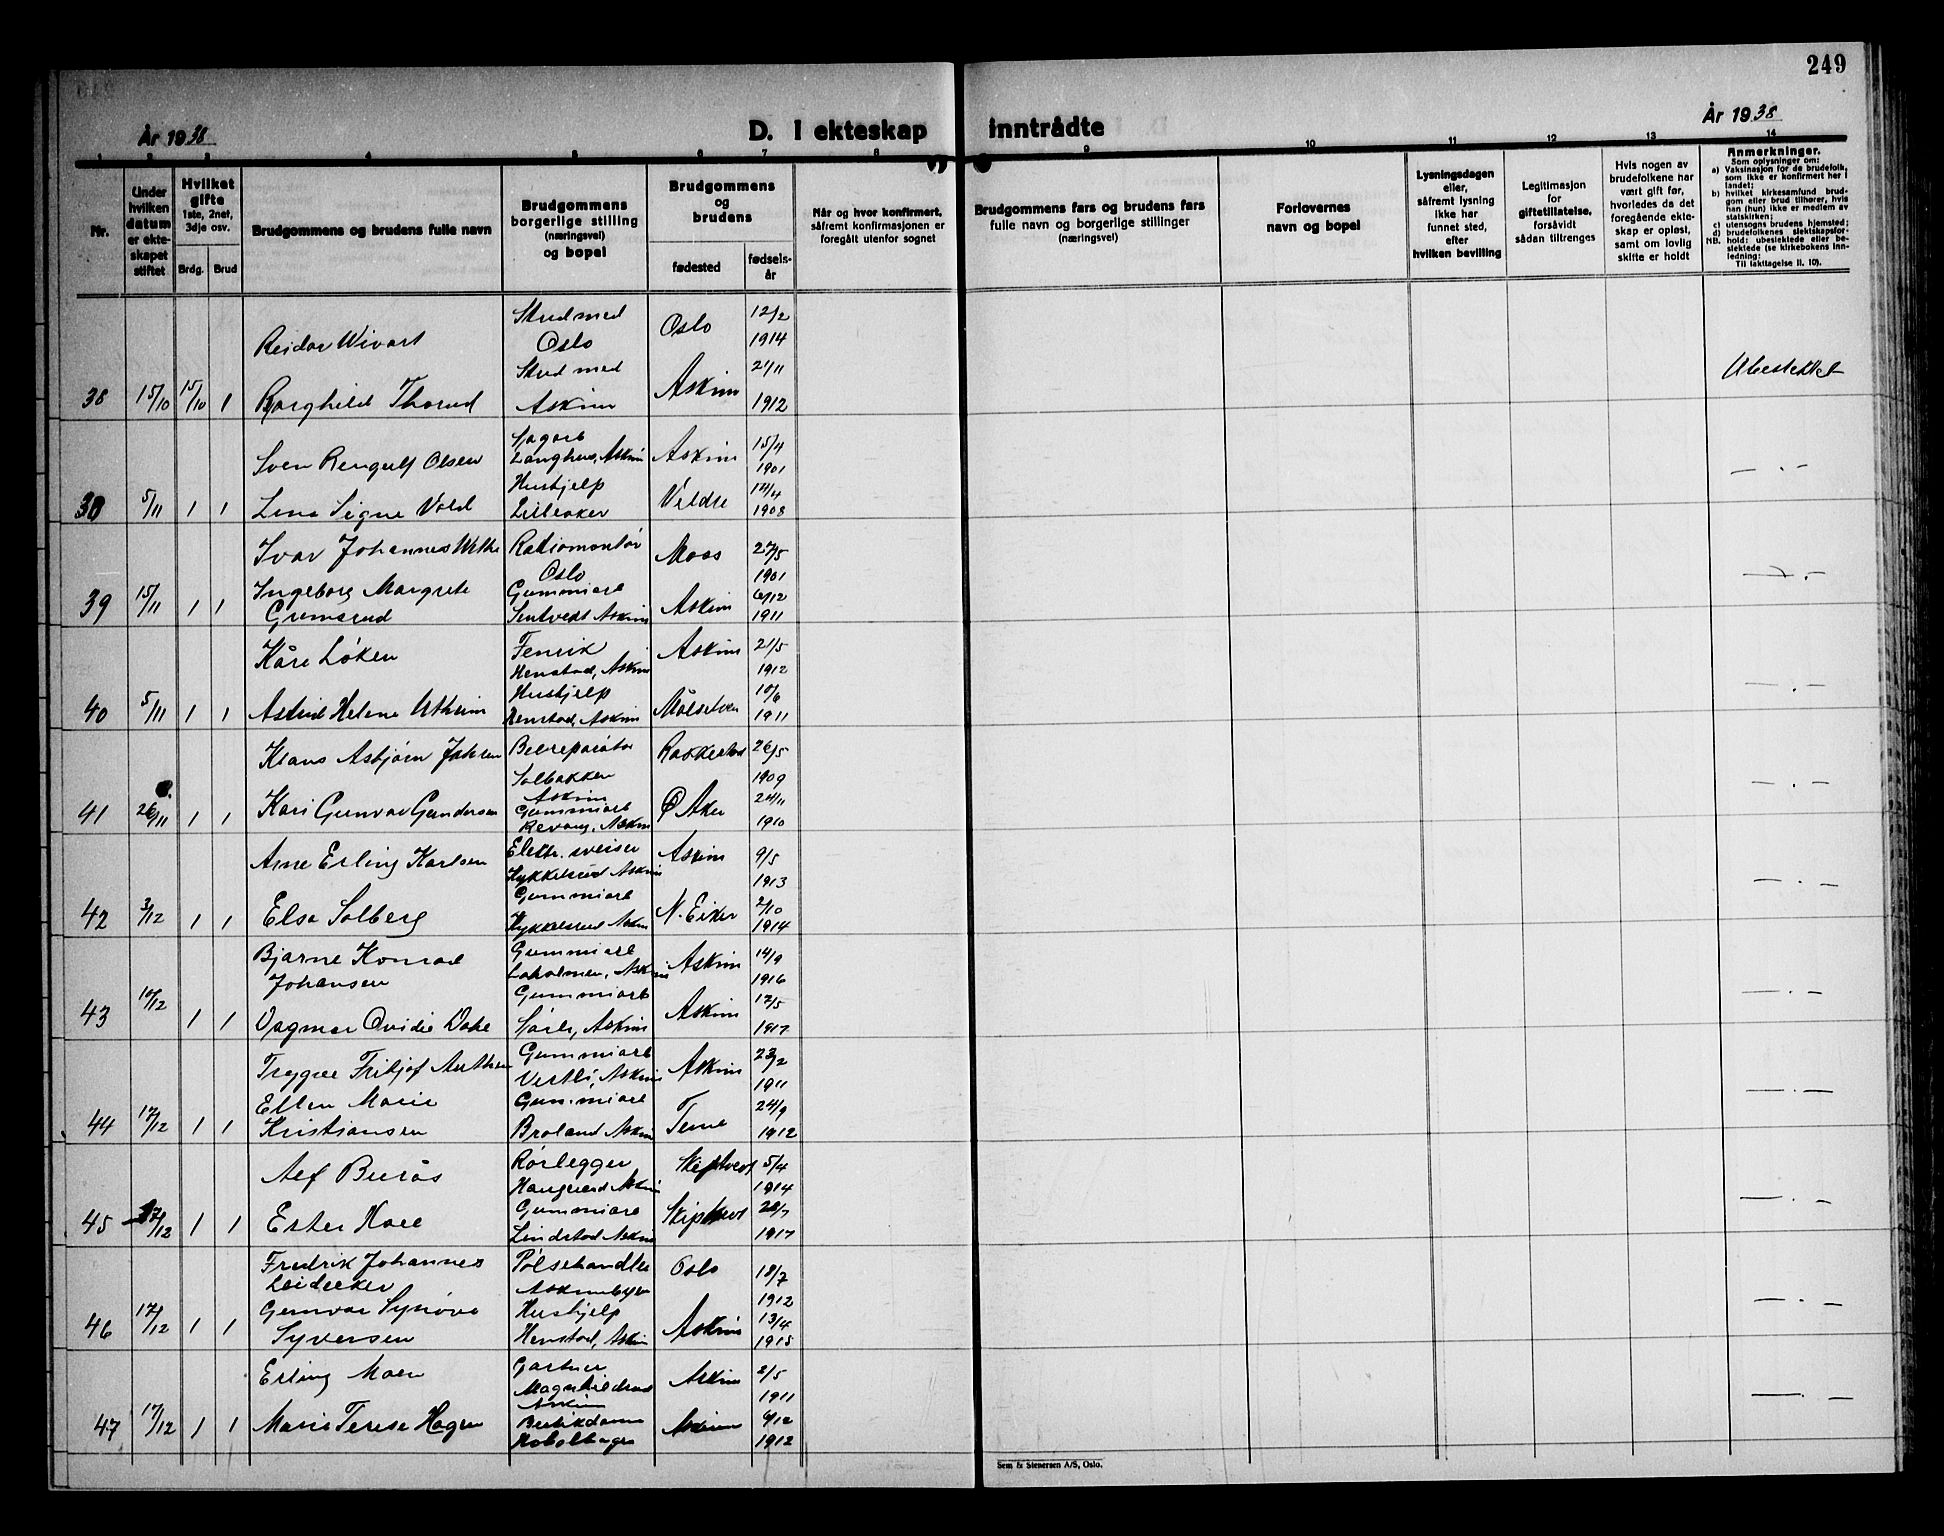 249
År 1938
D. I ekteskap inntrådte
År 1938
1 2 3 4 5 6 7 8 9 10 11 12 13 14
Nr.
Under hvilken datum er ekteskapet stiftet
Hvilket gifte 1ste, 2net, 3dje osv.
Brdg. Brud
Brudgommens og brudens fulle navn
Brudgommens og brudens borgerlige stilling (næringsvei) og bopel
Brudgommens og brudens
fødested
fødselsår
Når og hvor konfirmert, såfremt konfirmasjonen er foregått utenfor sognet
Brudgommens fars og brudens fars fulle navn og borgerlige stillinger (næringsvei)
Forlovernes navn og bopel
Lysningsdagen eller, såfremt lysning ikke har funnet sted, efter hvilken bevilling
Legitimasjon for giftetillatelse, forsåvidt sådan tiltrenges
Hvis nogen av brudefolkene har vært gift før, hvorledes da det foregående ekteskap er opløst, samt om lovlig skifte er holdt
Anmerkninger.
Som oplysninger om:
a) Vaksinasjon for de brudefolk, som ikke er konfirmert her i landet;
b) hvilket kirkesamfund brudgom eller brud tilhører, hvis han (hun) ikke er medlem av statskirken;
c) utensogns brudens hjemsted;
d) brudefolkenes slektskapsforhold: ubeslektede eller beslektede (se kirkebokens innledning: Til iakttagelse II. 10).
NB.
Reidar Wivart Stud med Oslo Oslo 12/2 1914
38 15/10 15/10 1 Borghild Thorud Stud med Askim Askim 21/11 1912 Ubeslektet
Sven Rengulf Olsen Langhus, Askim Askim 15/4 1901
38 5/11 1 1 Lina Signe Vold Hushjelp Lilleaker Veldre 1908 — . —
Ivar Johannes Radiomontør Oslo Moss 27/5 1901
39 15/11 1 1 Ingeborg Margrete Gremsrud Gummiarb Askim Askim 6/12 1911 — . —
Kåre Løken Fenrik Henstad, Askim Askim 21/5 1912
40 5/11 1 1 Astrid Helene Utheim Hushjelp Henstad, Askim Målselven 10/6 1911 — . —
Klaus Asbjørn Johnsen Solbakken Askim Rakkestad 26/5 1909
41 26/11 1 1 Kari Gunvor Gundersen Gummiarb Revaug, Askim Ø Aker 24/11 1910 — . —
Arne Erling Karlsen Elektr. sveiser Kykkelsrud Askim Askim 9/5 1913
42 3/12 1 1 Elsa Solberg Gummiarb Kykkelsrud Askim N. Eiker 2/10 1914 — . —
Bjarne Konrad Johansen Gummiarb Askim Askim 14/9 1916
43 10/12 1 1 Dagmar Ovidie Dahl Gummiarb Askim Askim 17/5 1917 — . —
Trygve Fritjof Gummiarb Askim Askim 23/2 1911
44 17/12 1 1 Ellen Marie Kristiansen Gummiarb Broland Askim 24/9 1912 — . —
Alf Burås Rørlegger Askim Skiptvet 5/4 1914
45 17/12 1 1 Ester Gummiarb Lindstad Askim Skiptvet 1917 — . —
Fredrik Johannes Leidecker Pølsehandler Askimbyen Oslo 18/7 1912
46 17/12 1 1 Gunvor Synøve Syversen Hushjelp Henstad, Askim Askim 13/4 1915 — . —
Erling Moen Gartner Magnhildrud Askim Askim 2/5 1911
47 17/12 1 1 Marie Terese Hagen Butikdame Askim 6/12 1912 — . —
Sem & Stenersen A/S, Oslo.